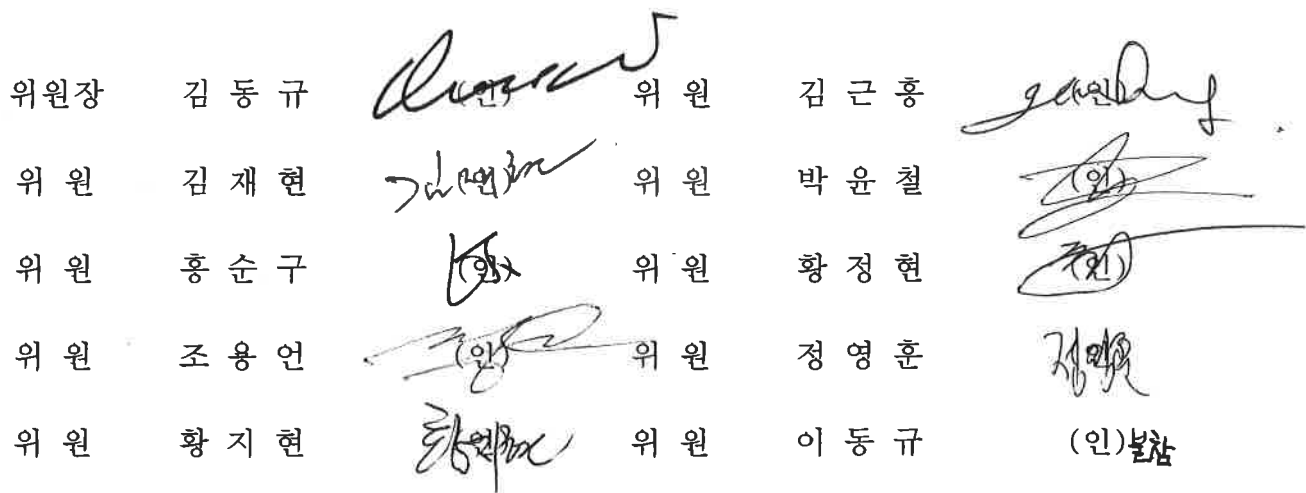 위원장 김 동 규 (인) 위 원 김 근 흥 (인)
위 원 김 재 현 (인) 위 원 박 윤 철 (인)
위 원 홍 순 구 (인) 위 원 황 정 현 (인)
위 원 조 용 언 (인) 위 원 정 영 훈
위 원 황 지 현 위 원 이 동 규 (인)불참